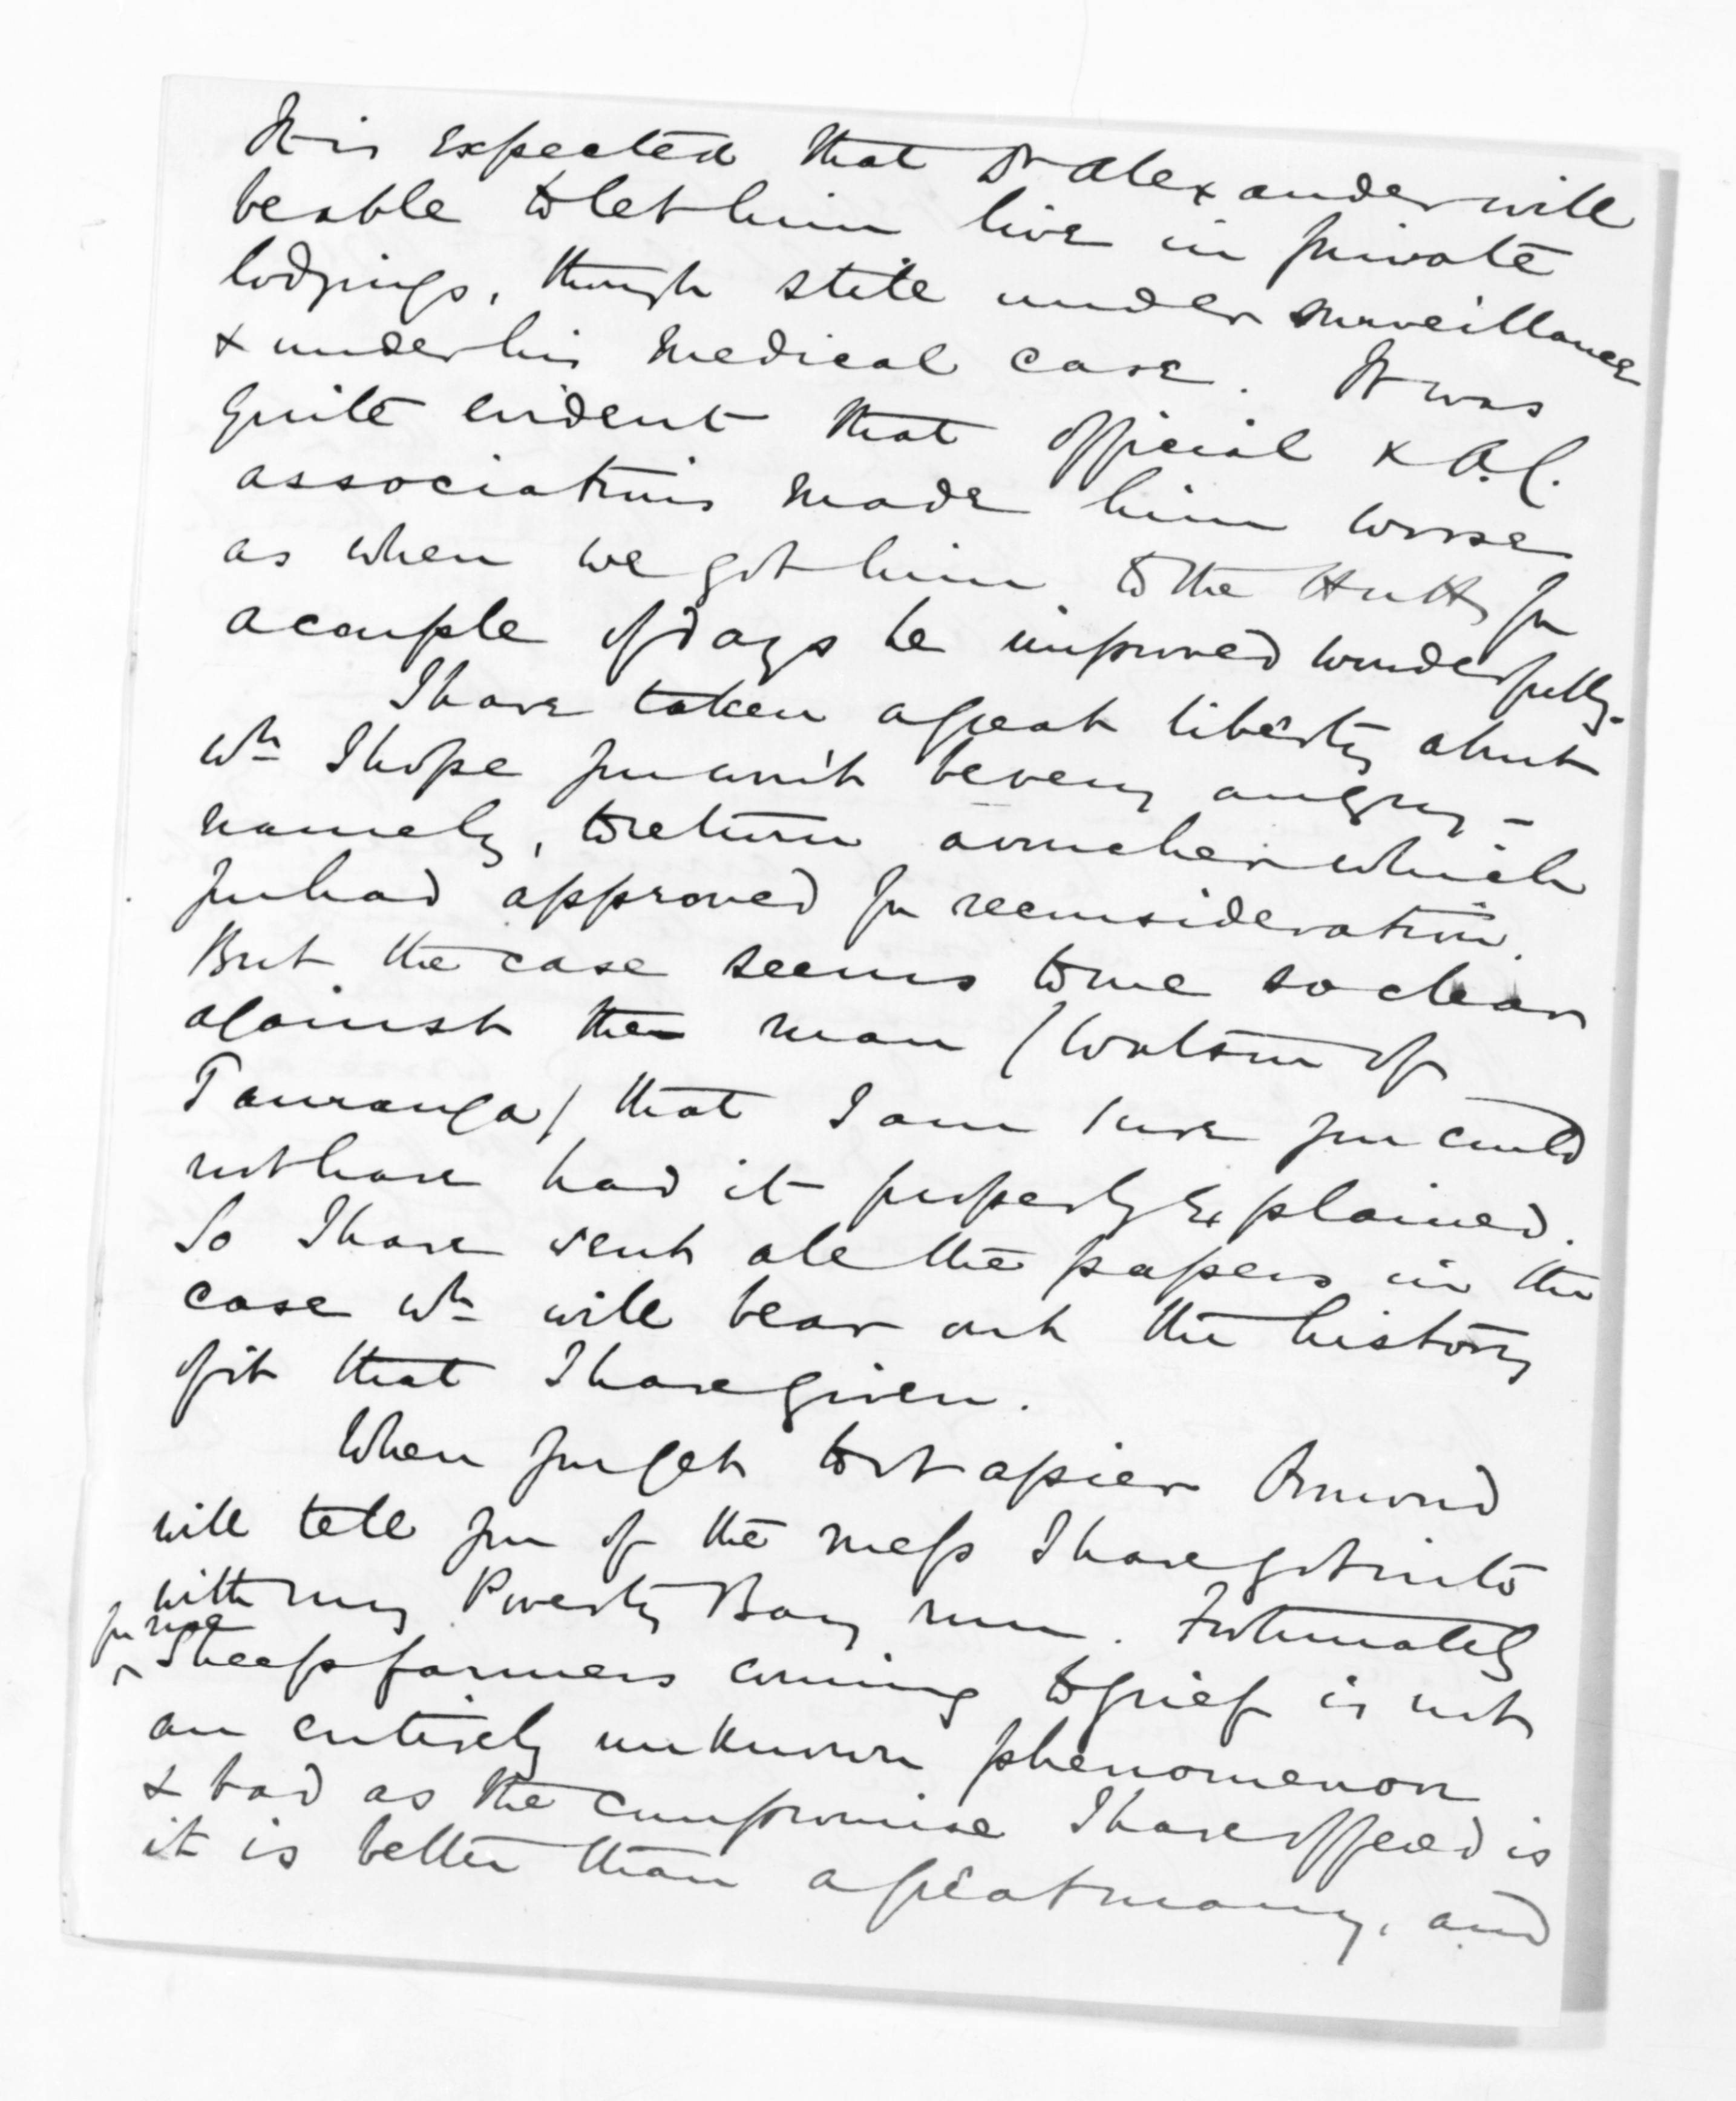 It is expected that Dr Alexander will
be able to let him live in private
lodgings, though still under surveillance
& under his medical care. It was
quite evident that official & A.C.
associations made him worse
as when we got him to the Hutt for
a couple of days he improved wonderfully.
I have taken a great liberty about
wh I hope you wont be very angry –
namely, to return a voucher which
you had approved for reconsideration.
But the case seems to me so clear
against the man (Watson of
Tauranga) that I am sure you could
not have had it properly explained.
So I have sent all the papers in the
case wh will bear out the history
of it that I have given.
When you get to Napier Ormond
will tell you of the mess I have got into
with my Poverty Bay run. Fortunately
for me
Sheepfarmers coming to grief is not
an entirely unknown phenomenon
& bad as the compromise I have offered is
it is better than a great many, and